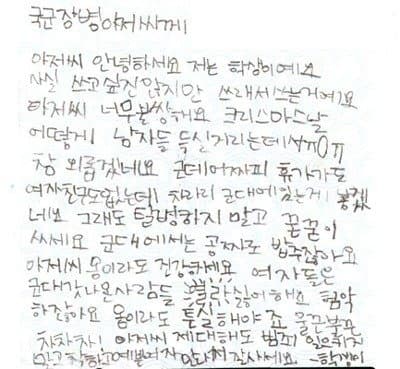 국군장병아저씨께
아저씨 안녕하세요 저는 학생이예요
사실 쓰고싶진않지만 쓰래서쓰는거예요
아저씨 너무불쌍해요 크리스마스날
어떻게 남자들 득실거리는데서ㅠ0ㅠ
참 외롭겠네요 근데어짜피 휴가가도
여자친구도없는데 차라리 군대에있는게 좋겠
네요 그래도 탈영하지 말고 꾿꾿이
싸세요 군대에서는 공짜로 밥주잖아요
아저씨 몸이라도 건강하세요 여자들은
군대갓나온사람들 별라싫어해요 험악
하잖아요 몸이라도 튼실해야죠 울끈불끈
차차차! 아저씨 제대해도 범죄 일으키지
말고 착하고예쁜여자만나서잘사세요